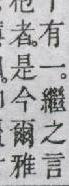 十有一。繼之言
者。是今爾雅